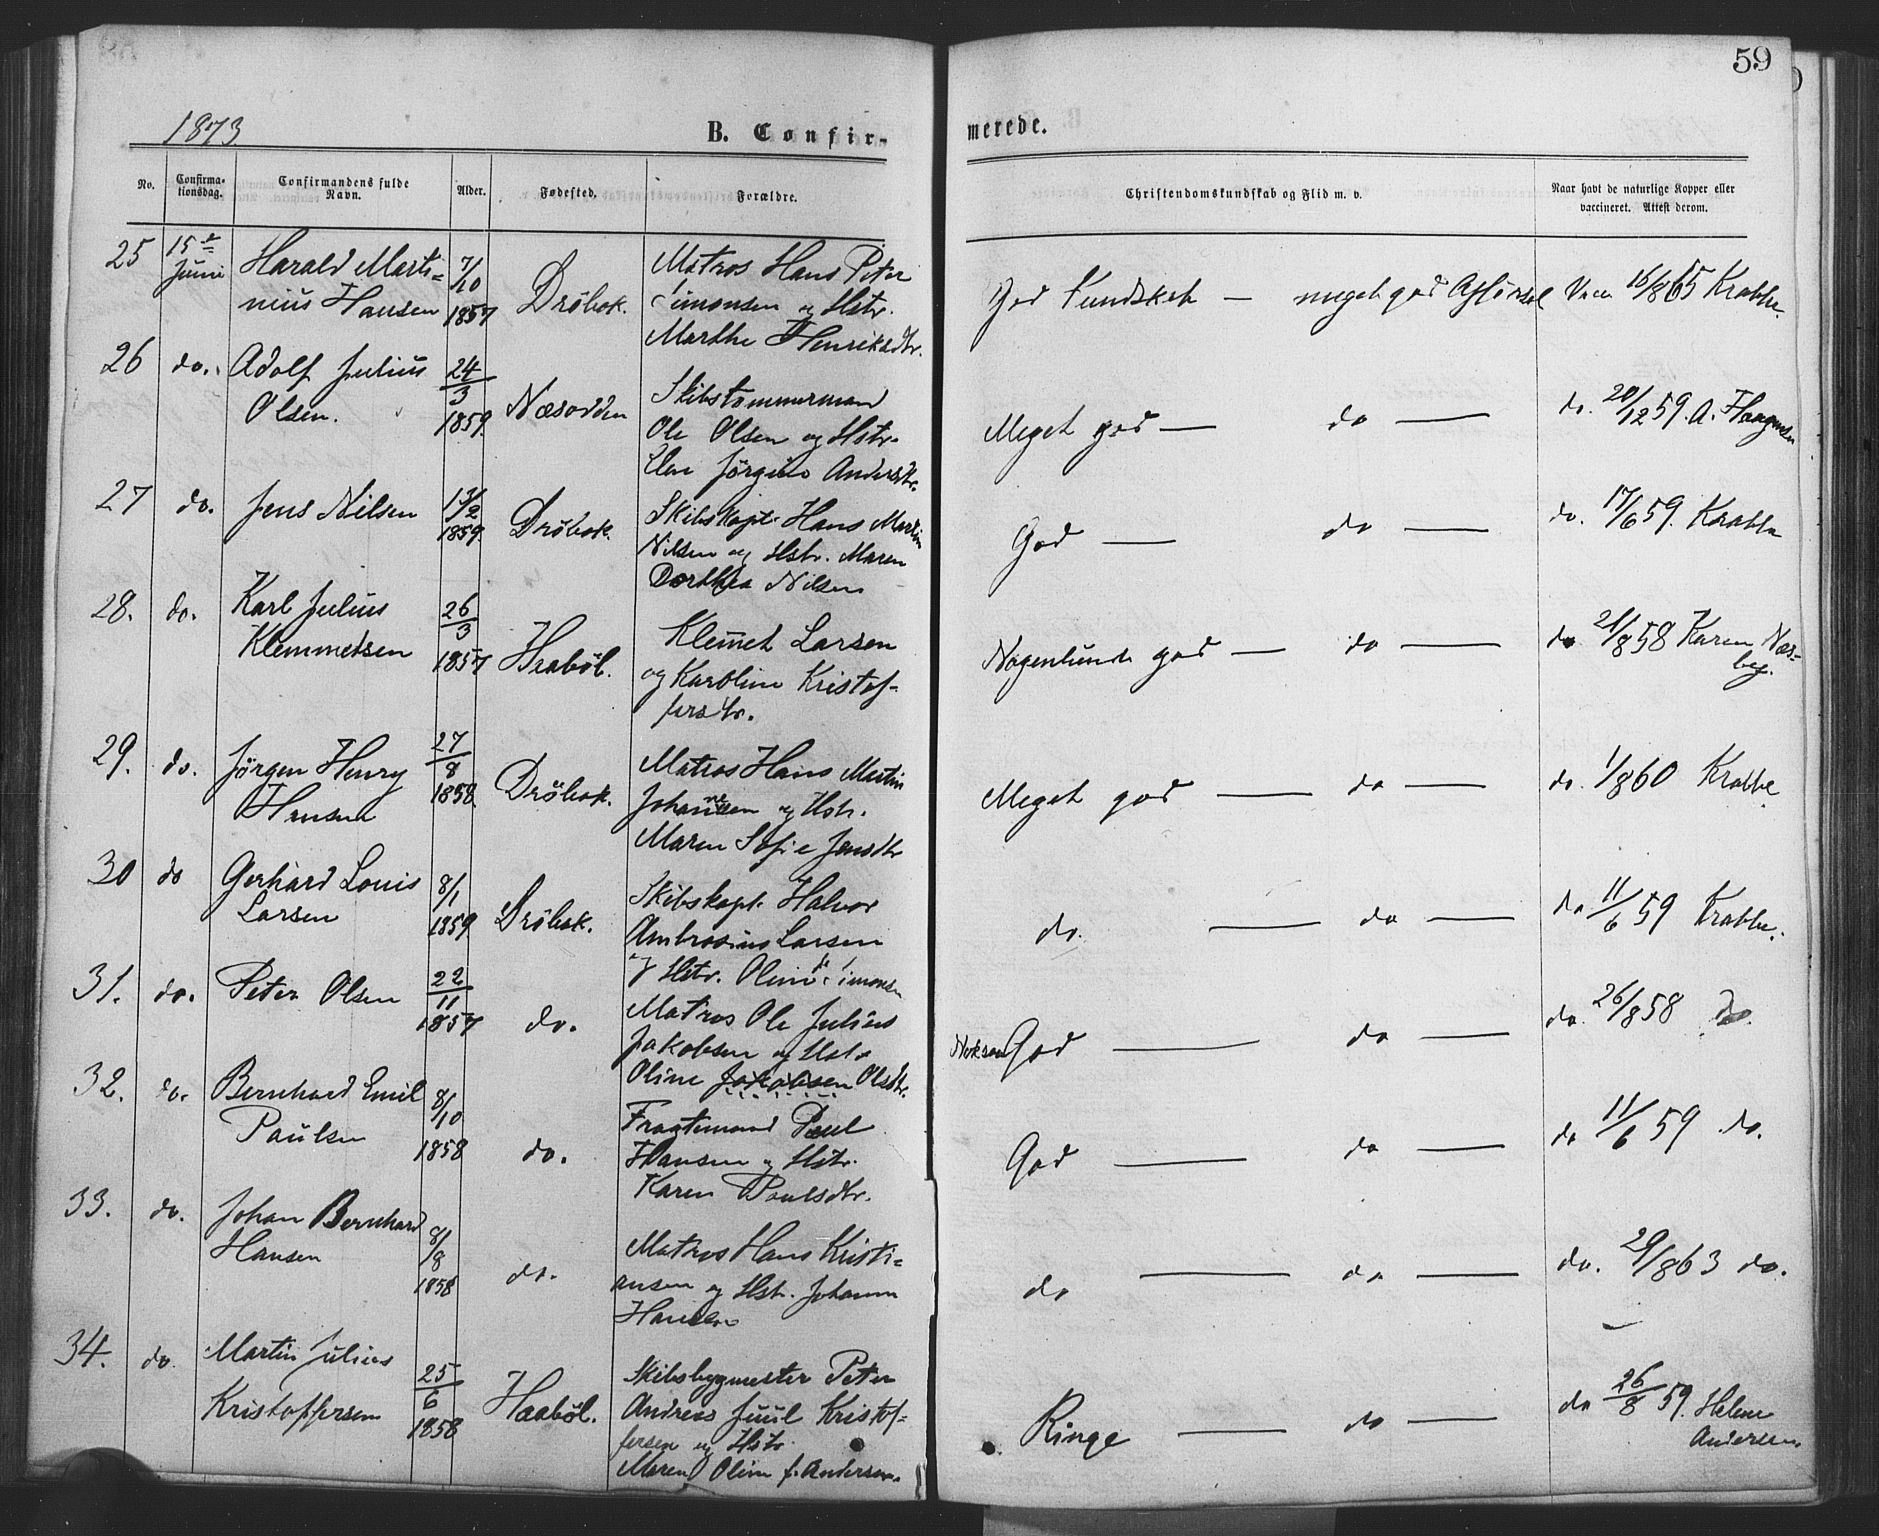 59
1873 B. Confir- merede.
No. Confirma-tionsdag. Confirmandens fulde Navn. Alder. Fødested. Forældre. Christendomskundskab og Flid m. v. Naar havt de naturlige Kopper eller vaccineret. Attest derom.
25 15de Juni Harald Marti-
nius Hansen 7/10 1857 Dröbak. Matros Hans Peter
Simonsen og Hstr.
Marthe Henriksdtr. God Kundskab — meget god Opförsel Vacc 16/8 65 Krabbe.
26 do. Adolf Julius
Olsen. 24/3 1859. Næsodden Skibstömmermand
Ole Olsen og Hstr.
Jörgine Andersdtr. Meget god — do — do. 20/12 59. A.
27 do. Jens Nilsen 1859. Dröbak. Skibskapt. Hans Martin
Nilsen og Hstr. Maren
Dorthea Nilsen God — do — do. 17/6 59. Krabbe
28. do. Karl Julius
Klemmetsen 26/3 1857 Haaböl. Klemet Larsen
og Karoline Kristof-
fersdtr. Nogenlunde god — do — do 21/8 58 Karen Næs-
by.
29. do. Jörgen Henry
Hansen 27/8 1858 Dröbak. Matros Hans Martin
Johannsen og Hstr.
Maren Sofie Jensdtr Meget god — do — do. 1/8 60 Krabbe
30 do Gerhard Louis
Larsen 8/1 1859 Dröbak. Skibskapt. Halvor
Ambrosius Larsen
og Hstr. Oline Simonsen do. — do — do 11/6 59 Krabbe.
31. do. Peter Olsen 22/11 1857 do. Matros Ole Julius
Jakobsen og Hstr
Oline Jakobsen Olsdtr. God — do — do. 26/8 58 do.
32. do. Bernhard Emil
Paulsen 8/10 1858 do. Fragtemand Paul
Hansen og Hstr.
Karen Paulsdtr. God — do — do 11/6 59 do.
33. do. Johan Bernhard
Hansen 8/8 1858 do. Matros Hans Kristi-
ansen og Hstr. Johanne
Hansen do — do — do. 29/8 63 do.
34. do. Martin Julius
Kristoffersen 25/6 1858 Haaböl. Skibsbygmester Peter
Andreas Juul Kristof-
fersen og Hstr.
Maren Oline f. Andersen. Ringe — do — do 26/8 59. Helene
Andersen.